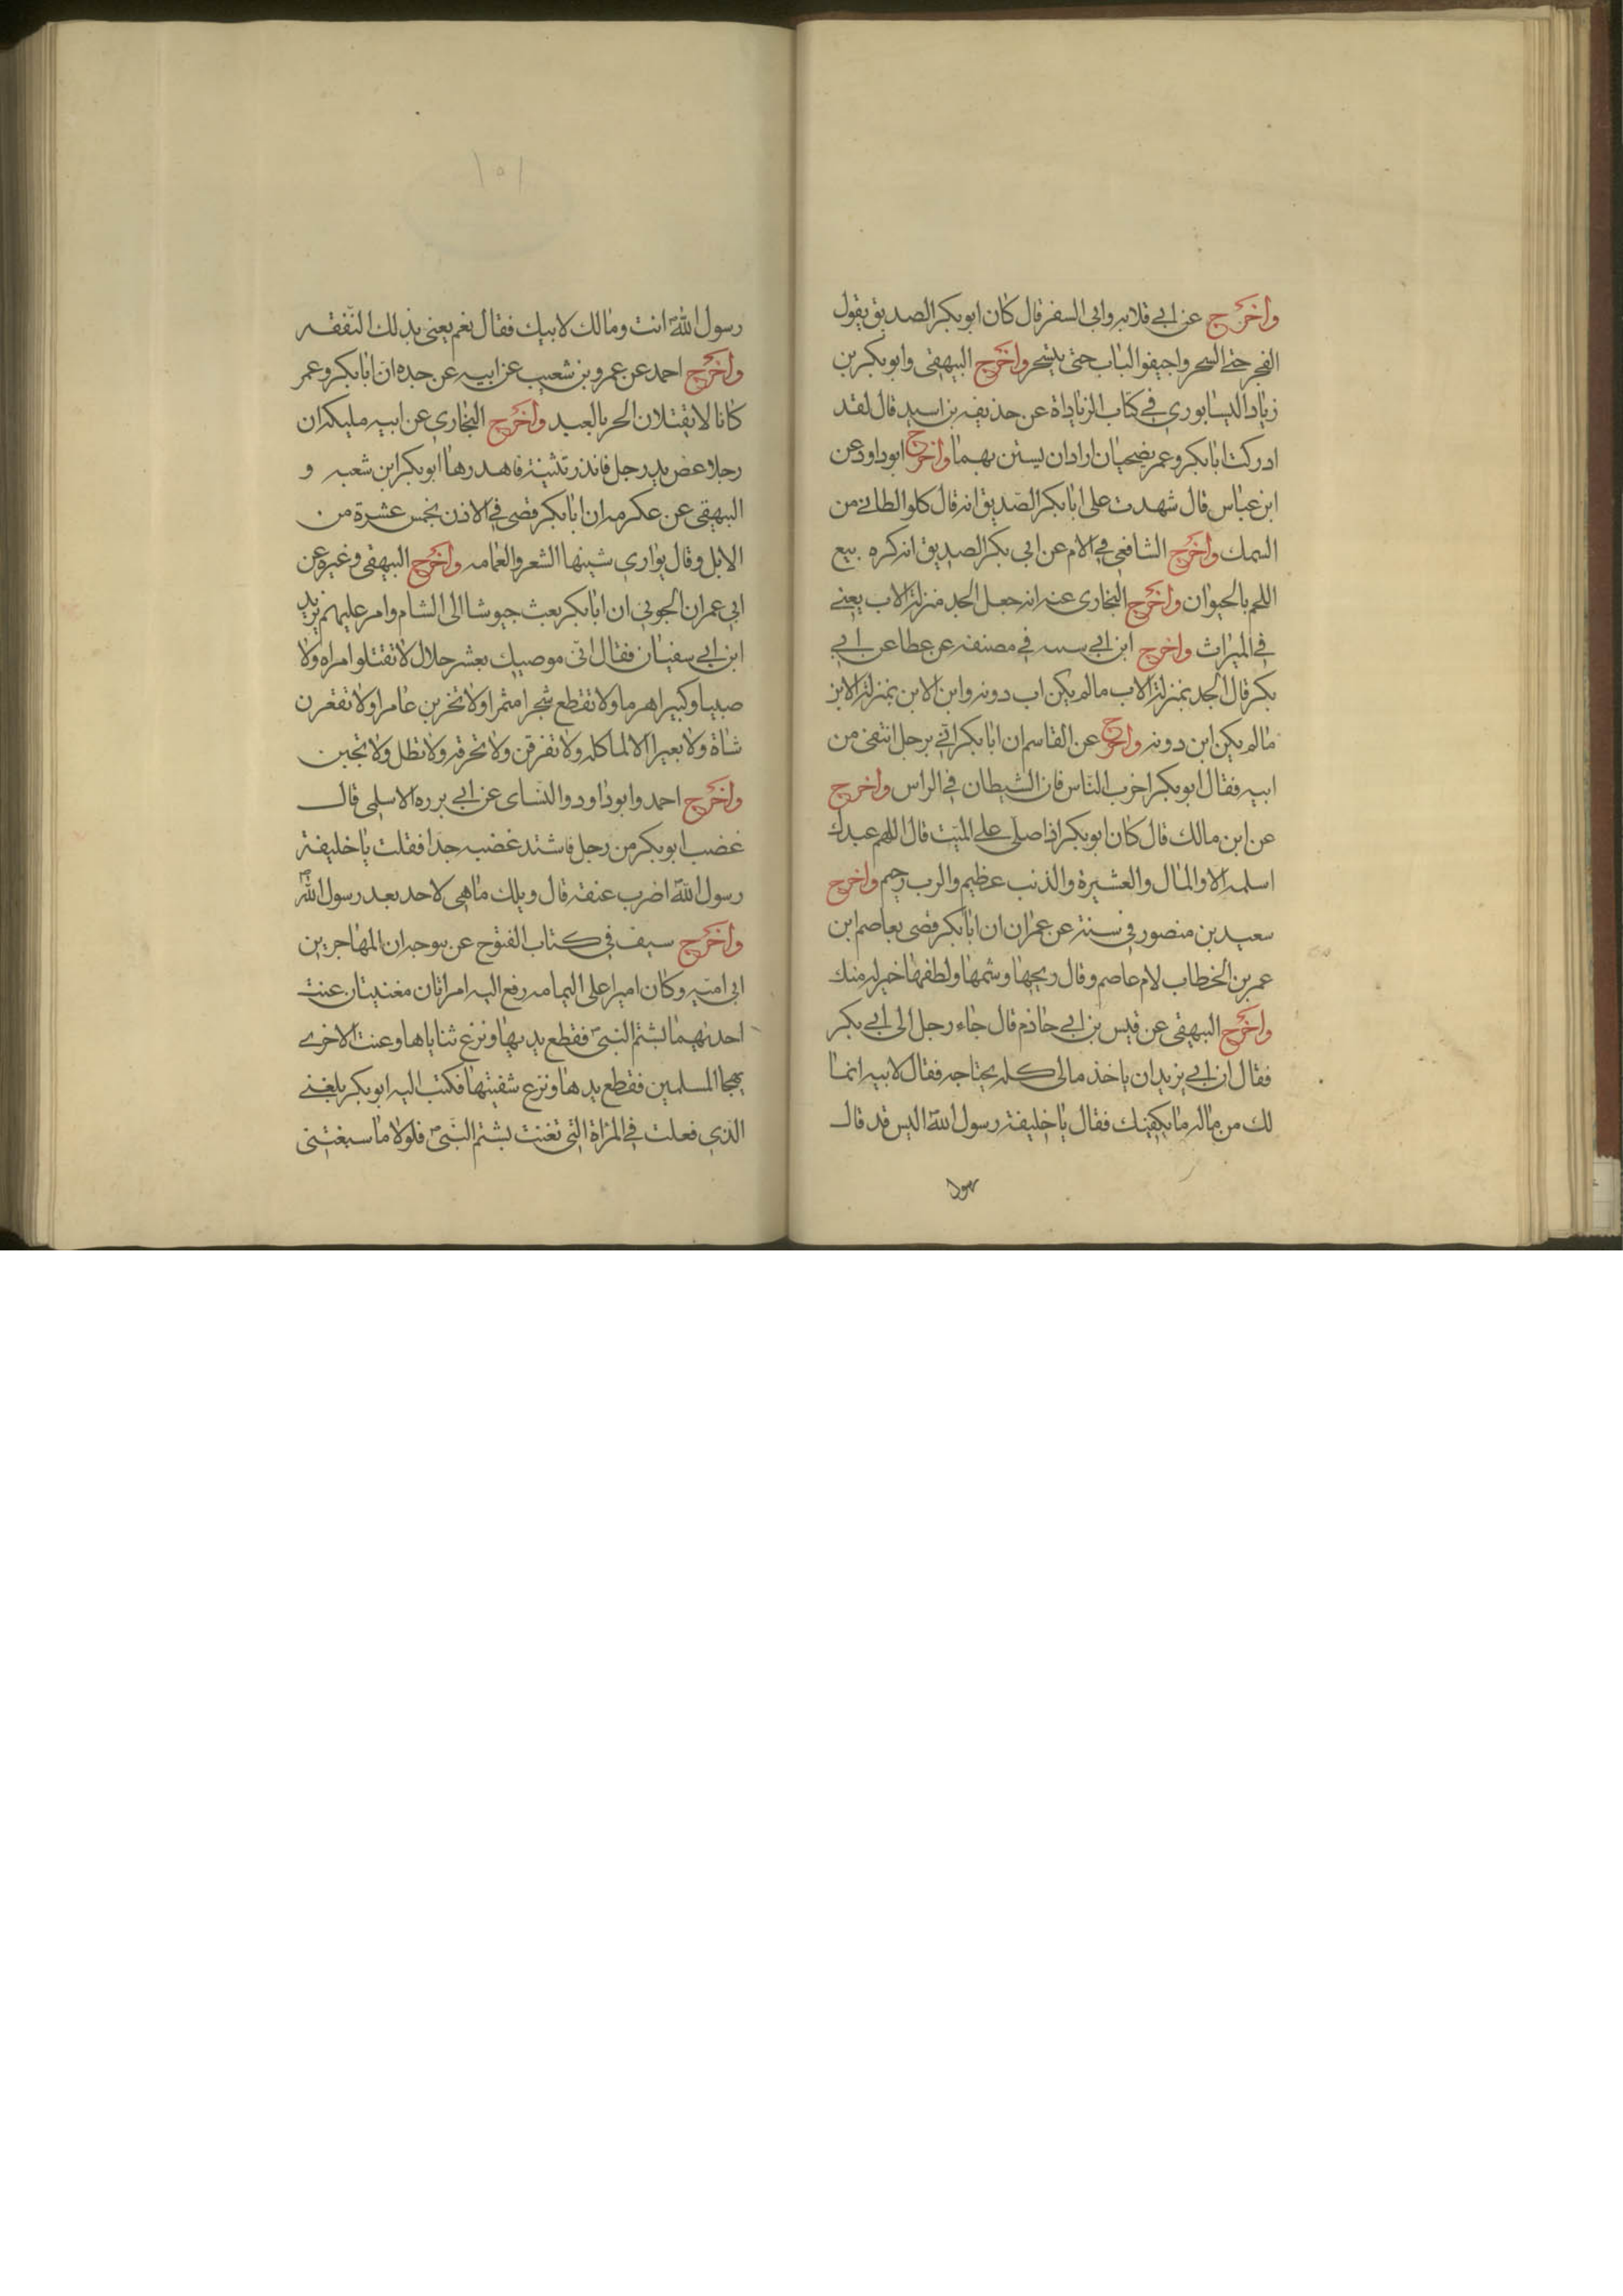 واخرج عن ابي قلابه وابي السفر قال كان ابو بكر الصديق يقول
الفجر حتى السحر واجيفو الباب حتى يتسحر واخرج البيهقي وابو بكر بن
زياد النيسابوري في كتاب الزياداة عن حذيفه بن اسيد قال لقد
ادركت ابا بكر وعمر يضحيان ارادان يستن بهما واخرج ابو داود عن
ابن عباس قال شهدت على ابا بكر الصديق انه قال كلو الطافي من
السمك واخرج الشافعي في الام عن ابي بكر الصديق انه كره بيع
اللحم بالحيوان واخرج البخاري عنه انه جعل الجد منزلة الاب يعني
في الميراث واخرج ابن ابي سسه في مصنفه عن عطا عن ابي
بكر قال الجد بمنزلة الاب مالم يكن اب دونه وابن الابن بمنزلة الابن
مالم يكن ابن دونه واخرج عن القاسم ان ابا بكر اتي برجل انتفى من
ابيه فقال ابو بكر اضرب الناس فان الشيطان في الراس واخرج
عن ابن مالك قال كان ابو بكر اذا صلى على الميت قال اللهم عبدك
اسلمه الا والمال والعشيرة والذنب عظيم والرب رحيم واخرج
سعيد بن منصور في سننه عن عمران ان ابا بكر قضى بعاصم ابن
عمر بن الخطاب لام عاصم وقال ريحها وشمها ولطفها خير له منك
واخرج البيهقي عن قيس بن ابي حاذم قال جاء رجل الى ابي بكر
فقال ان ابي يريد ان ياخذ مالي كله يحتاجه فقال لابيه انما
لك من ماله ما يكفيك فقال يا خليفة رسول الله اليس قد قال
رسول
١٥١
رسول الله انت ومالك لابيك فقال نعم يعني بذلك النفقه
واخرج احمد عن عمرو بن شعيب عن ابيه عن جده ان ابا بكر وعمر
كانا لا يقتلان الحر بالعبد واخرج البخاري عن ابيه مليكه ان
رجلا عض يد رجل فانذر ثنيته فاهدرها ابو بكر ابن شعبه و
البيهقي عن عكرمه ان ابا بكر قضى في الاذن بخمس عشرة من
الابل وقال يواري شينها الشعر والعمامه واخرج البيهقي وغيره عن
ابي عمران الجوني ان ابا بكر بعث جيوشا الى الشام وامر عليهم يزيد
ابن ابي سفيان فقال اني موصيك بعشر حلال لا تقتلو امراه ولا
صبيا وكبيرا هرما ولا تقطع شجرا مثمرا ولا تخربن عامرا ولا تقعرن
شاة ولا بعيرا الا لماكله ولا تفرقن ولا تحرقه ولا تظل ولا تجبن
واخرج احمد وابو داود والنساى عن ابي برره الاسلمي قال
غضب ابو بكر من رجل فاشتد غضبه جدا فقلت يا خليفة
رسول الله اضرب عنقه قال ويلك ما هي لاحد بعد رسول الله
واخرج سيف في كتاب الفتوح عن ان المهاجر بن
ابي اميه وكان اميرا على اليمامه رفع اليه امراتان مغنيتان عنت
احديهما بشتم النبي فقطع يديها ونزع ثناياها وعنت الاخرى
بهجا المسلمين فقطع يدها ونزع شفيتها فكتب اليه ابو بكر بلغني
الذي فعلت في المراة التي تغنت بشتم النبي فلولا ما سبغتني